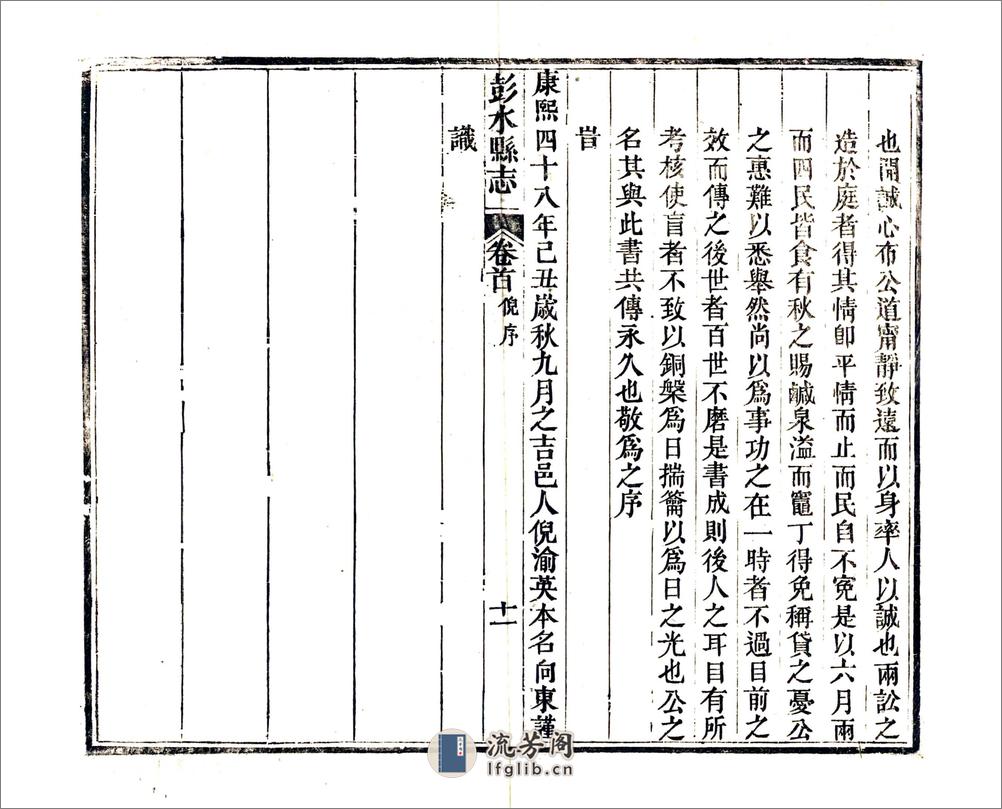 也開誠心布公道甯靜致遠而以身率人以誠也兩訟之
造於庭者得其情卽平情而止而民自不寃是以六月雨
而四民皆食有秋之賜鹹泉溢而竈丁得免稱貸之憂公
之惠難以悉舉然尚以爲事功之在一時者不過目前之
效而傳之後世者百世不磨是書成則後人之耳目有所
考核使盲者不致以銅槃爲日揣籥以爲日之光也公之
名其與此書共傳永久也敬爲之序
旹
康熙四十八年己丑歲秋九月之吉邑人倪渝英本名向東謹
彭水縣志 卷首 倪序 十一
識
流芳阁
lfglib.cn